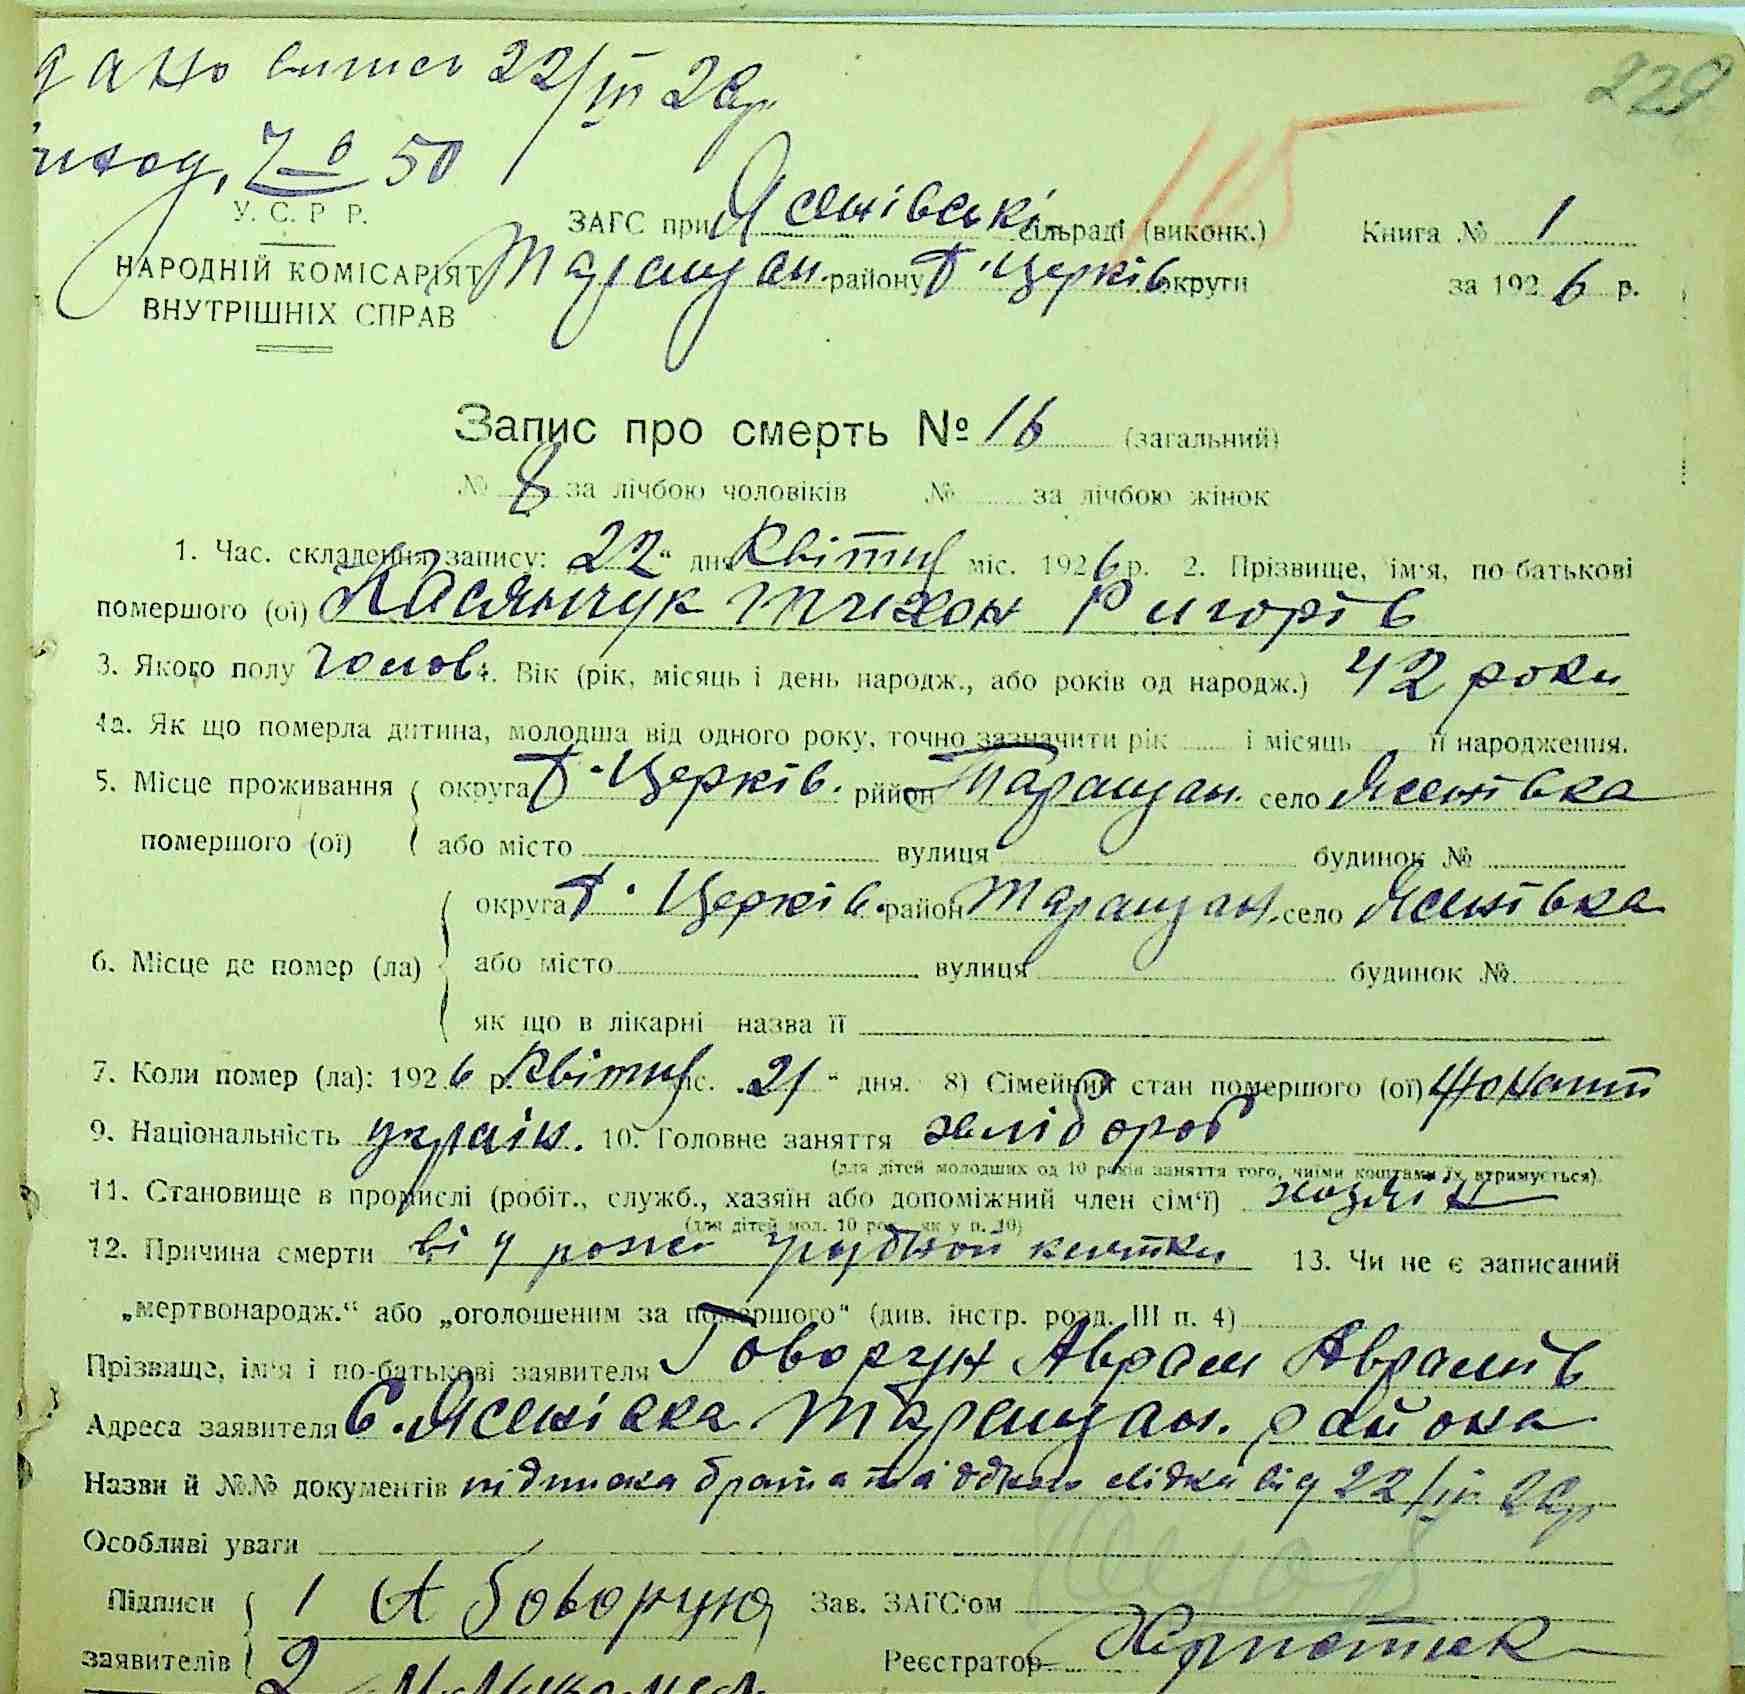 229
дано витяг 22/IV 26р.
105
У. С. Р. Р.
НАРОДНІЙ КОМІСАРІЯТ
ВНУТРІШНІХ СПРАВ
ЗАГС при Ясенівські сільраді (виконк.) Книга № 1
Таращан. району Б. Церків округи за 1926 р.
Запис про смерть № 16 (загальний)
№ 8 за лічбою чоловіків № за лічбою жінок
1. Час. складення запису: „22“ дня Квітня міс. 1926 р. 2. Прізвище, ім'я, по-батькові
помершого (ої) Касянчук Тихон Григорів
3. Якого полу чолов. 4. Вік (рік, місяць і день народж., або років од народж.) 42 роки
4а. Як що померла дитина, молодша від одного року, точно зазначити рік і місяць її народження.
5. Місце проживання округа Б. Церків. рййон Таращан. село Ясенівка
помершого (ої) або місто вулиця будинок №
округа Б. Церків. район Таращан. село Ясенівка
6. Місце де помер (ла) або місто вулиця будинок №
як що в лікарні назва її
7. Коли помер (ла): 1926 р. Квітня міс. „21“ дня. 8) Сімейний стан помершого (ої) жонатий
9. Національність україн. 10. Головне заняття хлібороб
(для дітей молодших од 10 років заняття того, чиїми коштами їх втримується).
11. Становище в промислі (робіт., служб., хазяїн або допоміжний член сім'ї) хазяїн
(для дітей мол. 10 рок. як у п. 10)
12. Причина смерти від грудной клітки 13. Чи не є записаний
„мертвонародж.“ або „оголошеним за помершого“ (див. інстр. розд. III п. 4)
Прізвище, ім'я і по-батькові заявителя Говорун Аврам Аврамів
Адреса заявителя С. Ясенівка Таращан. района
Назви й №№ документів підписка брата та від 22/IV 26р
Особливі уваги
Підписи 1 А Говорун Зав. ЗАГС'ом
заявителів 2 Реєстратор